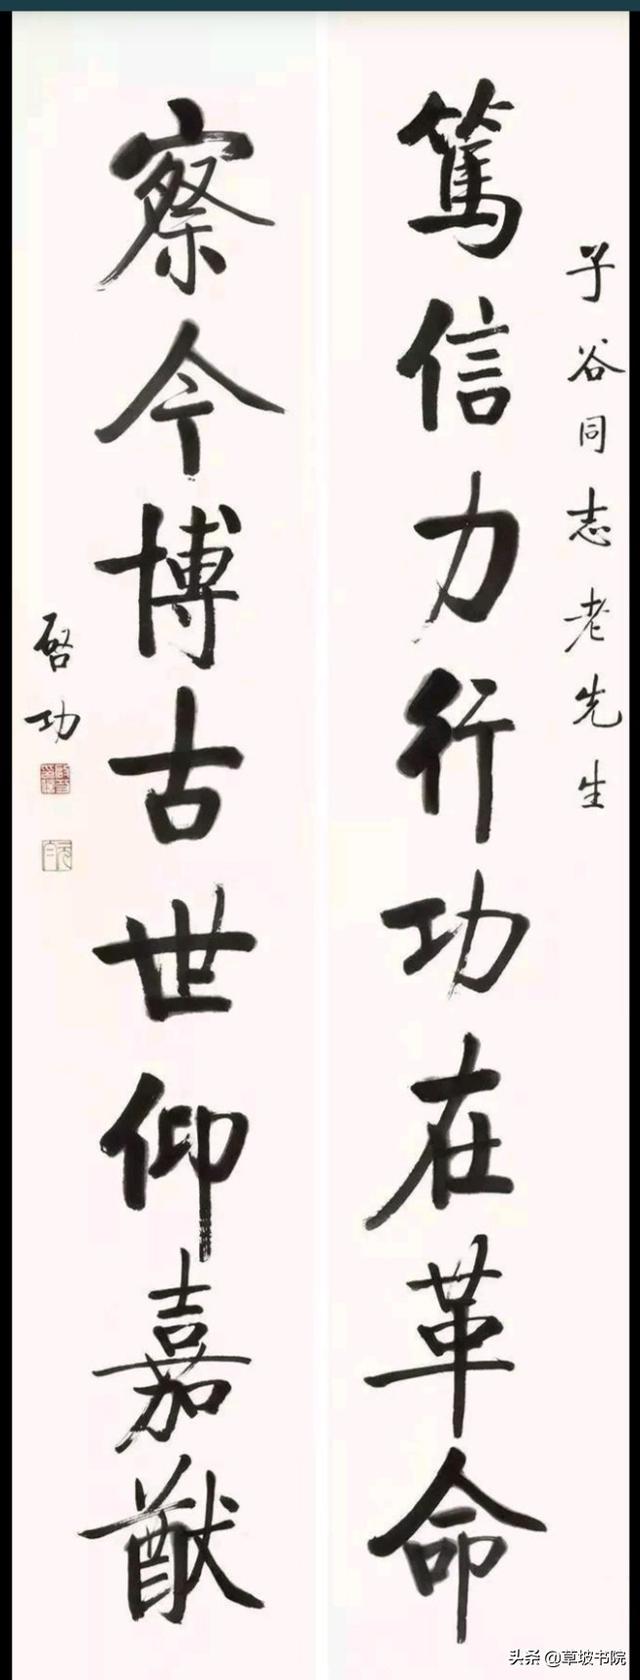 子谷同志老先生
篤信力行功在革命
察今博古世仰嘉猷
启功
头条 @草坡书院